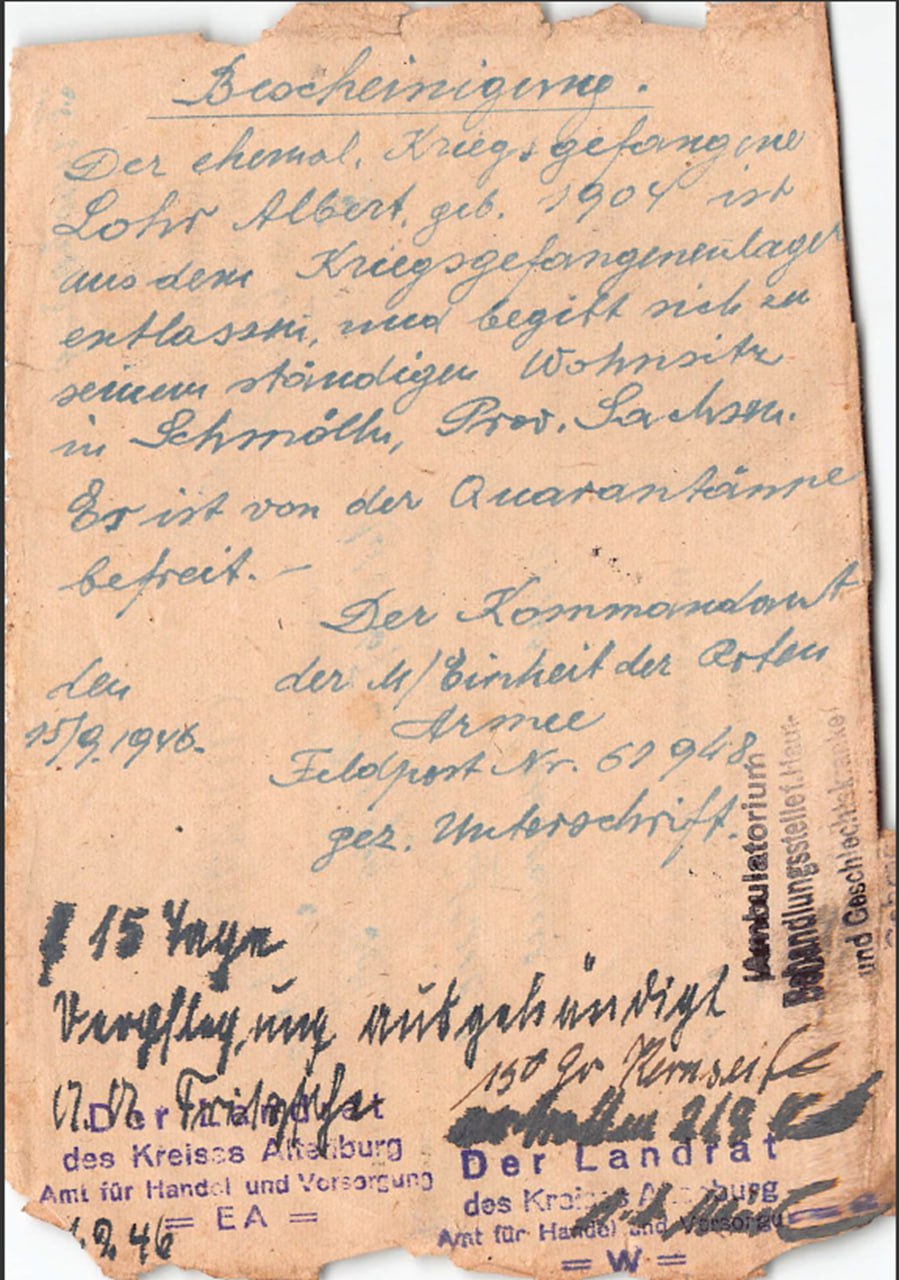 Bescheinigung.
Der ehemal. Kriegsgefangene
Lohr Albert, geb. 1904 ist
aus dem Kriegsgefangenenlager
entlassen, und begibt sich zu
seinem ständigen Wohnsitz
in Schmölln, Prov. Sachsen.
Er ist von der Quarantänne
befreit. –
Der Kommandant
der M/Einheit der Roten
Armee
Feldpost Nr. 61948
gez. Unterschrift.
den
15/9.1946.
Ambulatorium
Behandlungsstelle f. Haut-
und Geschlechtskranke
15 Tage
Verpflegung ausgehändigt
Der Landrat
des Kreises Altenburg
Amt für Handel und Versorgung
= EA =
2.46
150 Gr Kernseife
erhalten
Der Landrat
des Kreises Altenburg
Amt für Handel und Versorgu
= W =